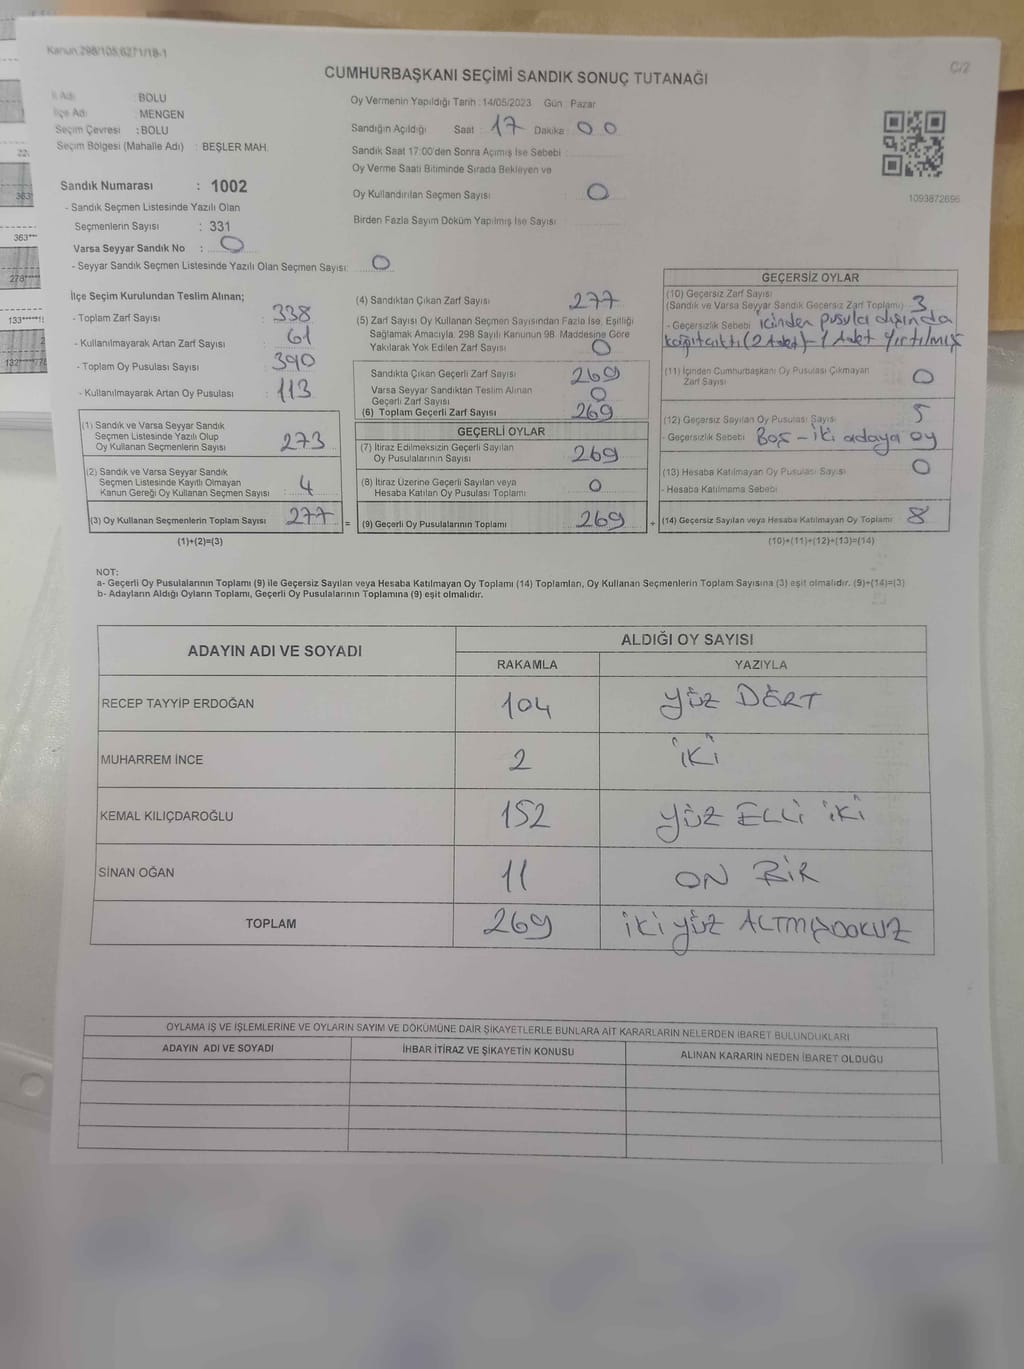 Kanun 298/105,6271/18-1
CUMHURBAŞKANI SEÇİMİ SANDIK SONUÇ TUTANAĞI
C/2
İl Adı : BOLU
İlçe Adı : MENGEN
Seçim Çevresi : BOLU
Seçim Bölgesi (Mahalle Adı) : BEŞLER MAH.
Sandık Numarası : 1002
- Sandık Seçmen Listesinde Yazılı Olan
Seçmenlerin Sayısı : 331
Varsa Seyyar Sandık No : 0
- Seyyar Sandık Seçmen Listesinde Yazılı Olan Seçmen Sayısı: 0
Oy Vermenin Yapıldığı Tarih : 14/05/2023 Gün : Pazar
Sandığın Açıldığı Saat : 17 Dakika : 00
Sandık Saat 17:00'den Sonra Açımış İse Sebebi :
Oy Verme Saati Bitiminde Sırada Bekleyen ve
Oy Kullandırılan Seçmen Sayısı : 0
Birden Fazla Sayım Döküm Yapılmış İse Sayısı
1093872696
İlçe Seçim Kurulundan Teslim Alınan;
- Toplam Zarf Sayısı : 338
- Kullanılmayarak Artan Zarf Sayısı : 61
- Toplam Oy Pusulası Sayısı : 390
- Kullanılmayarak Artan Oy Pusulası : 113
(1) Sandık ve Varsa Seyyar Sandık
Seçmen Listesinde Yazılı Olup
Oy Kullanan Seçmenlerin Sayısı : 273
(2) Sandık ve Varsa Seyyar Sandık
Seçmen Listesinde Kayıtlı Olmayan
Kanun Gereği Oy Kullanan Seçmen Sayısı : 4
(3) Oy Kullanan Seçmenlerin Toplam Sayısı : 277 =
(1)+(2)=(3)
(4) Sandıktan Çıkan Zarf Sayısı 277
(5) Zarf Sayısı Oy Kullanan Seçmen Sayısından Fazla İse, Eşitliği
Sağlamak Amacıyla, 298 Sayılı Kanunun 98. Maddesine Göre
Yakılarak Yok Edilen Zarf Sayısı 0
Sandıkta Çıkan Geçerli Zarf Sayısı 269
Varsa Seyyar Sandıktan Teslim Alınan
Geçerli Zarf Sayısı 0
(6) Toplam Geçerli Zarf Sayısı 269
GEÇERLİ OYLAR
(7) İtiraz Edilmeksizin Geçerli Sayılan
Oy Pusulalarının Sayısı 269
(8) İtiraz Üzerine Geçerli Sayılan veya
Hesaba Katılan Oy Pusulası Toplamı 0
(9) Geçerli Oy Pusulalarının Toplamı 269 +
GEÇERSİZ OYLAR
(10) Geçersiz Zarf Sayısı
(Sandık ve Varsa Seyyar Sandık Geçersiz Zarf Toplamı) 3
- Geçersizlik Sebebi içinden pusula dışında
kağıt çıktı (2 Adet) - 1 Adet Yırtılmış
(11) İçinden Cumhurbaşkanı Oy Pusulası Çıkmayan
Zarf Sayısı 0
(12) Geçersiz Sayılan Oy Pusulası Sayısı 5
- Geçersizlik Sebebi Boş - iki adaya oy
(13) Hesaba Katılmayan Oy Pusulası Sayısı 0
- Hesaba Katılmama Sebebi
(14) Geçersiz Sayılan veya Hesaba Katılmayan Oy Toplamı 8
(10)+(11)+(12)+(13)=(14)
NOT:
a- Geçerli Oy Pusulalarının Toplamı (9) ile Geçersiz Sayılan veya Hesaba Katılmayan Oy Toplamı (14) Toplamları, Oy Kullanan Seçmenlerin Toplam Sayısına (3) eşit olmalıdır. (9)+(14)=(3)
b- Adayların Aldığı Oyların Toplamı, Geçerli Oy Pusulalarının Toplamına (9) eşit olmalıdır.
ADAYIN ADI VE SOYADI ALDIĞI OY SAYISI
RAKAMLA YAZIYLA
RECEP TAYYİP ERDOĞAN 104 YÜZ DÖRT
MUHARREM İNCE 2 İKİ
KEMAL KILIÇDAROĞLU 152 YÜZ ELLİ İKİ
SİNAN OĞAN 11 ON BİR
TOPLAM 269 İKİ YÜZ ALTMIŞDOKUZ
OYLAMA İŞ VE İŞLEMLERİNE VE OYLARIN SAYIM VE DÖKÜMÜNE DAİR ŞİKAYETLERLE BUNLARA AİT KARARLARIN NELERDEN İBARET BULUNDUKLARI
ADAYIN ADI VE SOYADI İHBAR İTİRAZ VE ŞİKAYETİN KONUSU ALINAN KARARIN NEDEN İBARET OLDUĞU